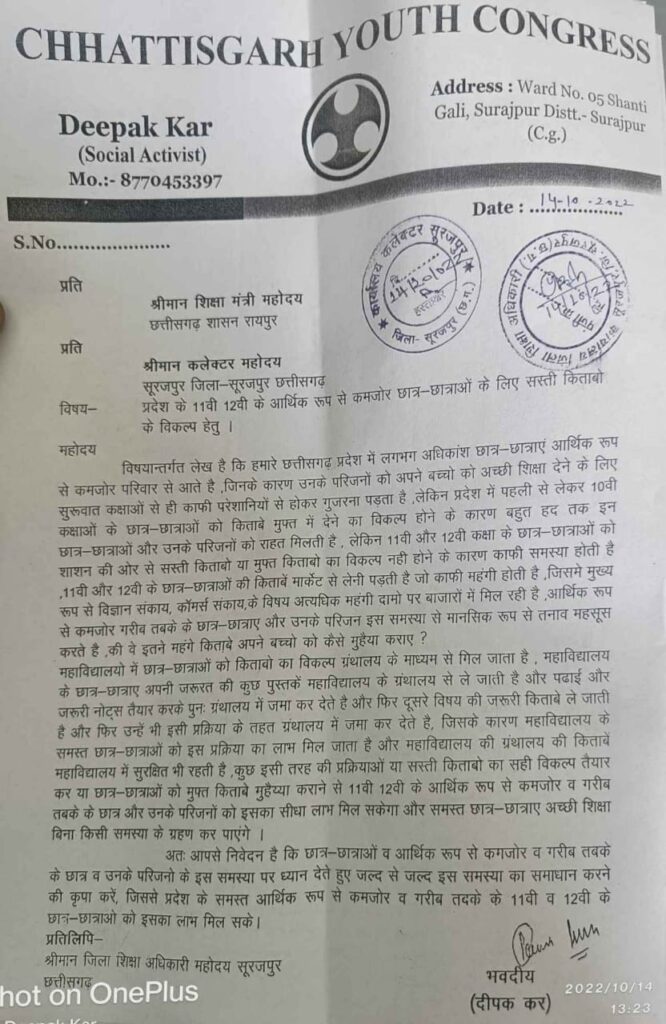 CHHATTISGARH YOUTH CONGRESS
Deepak Kar
(Social Activist)
Mo.:- 8770453397
Address : Ward No. 05 Shanti
Gali, Surajpur Distt.- Surajpur
(C.g.)
Date : 14-10-2022
S.No.
कार्यालय कलेक्टर सूरजपुर
जिला- सूरजपुर (छ.ग.)
प्रति
श्रीमान शिक्षा मंत्री महोदय
छत्तीसगढ़ शासन रायपुर
प्रति
श्रीमान कलेक्टर महोदय
सूरजपुर जिला–सूरजपुर छत्तीसगढ़
विषय– प्रदेश के 11वी 12वी के आर्थिक रूप से कमजोर छात्र–छात्राओं के लिए सस्ती किताबो
के विकल्प हेतु ।
महोदय
विषयान्तर्गत लेख है कि हमारे छत्तीसगढ़ प्रदेश में लगभग अधिकांश छात्र–छात्राएं आर्थिक रूप
से कमजोर परिवार से आते है ,जिनके कारण उनके परिजनों को अपने बच्चो को अच्छी शिक्षा देने के लिए
सुरूवात कक्षाओं से ही काफी परेशानियों से होकर गुजरना पड़ता है ,लेकिन प्रदेश में पहली से लेकर 10वी
कक्षाओं के छात्र–छात्राओं को किताबे मुफ्त में देने का विकल्प होने के कारण बहुत हद तक इन
छात्र–छात्राओं और उनके परिजनों को राहत मिलती है , लेकिन 11वी और 12वी कक्षा के छात्र–छात्राओं को
शाशन की ओर से सस्ती किताबो या मुफ्त किताबो का विकल्प नही होने के कारण काफी समस्या होती है
,11वी और 12वी के छात्र–छात्राओं की किताबें मार्केट से लेनी पड़ती है जो काफी महंगी होती है ,जिसमे मुख्य
रूप से विज्ञान संकाय, कॉमर्स संकाय,के विषय अत्यधिक महंगी दामो पर बाजारों में मिल रही है ,आर्थिक रूप
से कमजोर गरीब तबके के छात्र–छात्राए और उनके परिजन इस समस्या से मानसिक रूप से तनाव महसूस
करते है ,की वे इतने महंगे किताबे अपने बच्चो को कैसे मुहैया कराए ?
महाविद्यालयो में छात्र–छात्राओं को किताबो का विकल्प ग्रंथालय के माध्यम से गिल जाता है , महाविद्यालय
के छात्र–छात्राए अपनी जरूरत की कुछ पुस्तकें महाविद्यालय के ग्रंथालय से ले जाती है और पढाई और
जरूरी नोट्स तैयार करके पुनः ग्रंथालय में जमा कर देते है और फिर दूसरे विषय की जरूरी किताबे ले जाती
है और फिर उन्हें भी इसी प्रक्रिया के तहत ग्रंथालय में जमा कर देते है, जिसके कारण महाविद्यालय के
समस्त छात्र–छात्राओं को इस प्रक्रिया का लाभ मिल जाता है और महाविद्यालय की ग्रंथालय की किताबें
महाविद्यालय में सुरक्षित भी रहती है ,कुछ इसी तरह की प्रक्रियाओं या सस्ती किताबो का सही विकल्प तैयार
कर या छात्र–छात्राओं को मुफ्त किताबे मुहैय्या कराने से 11वी 12वी के आर्थिक रूप से कमजोर व गरीब
तबके के छात्र और उनके परिजनों को इसका सीधा लाभ मिल सकेगा और समस्त छात्र–छात्राए अच्छी शिक्षा
बिना किसी समस्या के ग्रहण कर पाएंगे ।
अतः आपसे निवेदन है कि छात्र–छात्राओं व आर्थिक रूप से कगजोर व गरीब तबके
के छात्र व उनके परिजनो के इस समस्या पर ध्यान देते हुए जल्द से जल्द इस समस्या का समाधान करने
की कृपा करें, जिससे प्रदेश के समस्त आर्थिक रूप से कमजोर व गरीब तदके के 11वी व 12वी के
छात्र–छात्राओ को इसका लाभ मिल सके।
प्रतिलिपि–
श्रीमान जिला शिक्षा अधिकारी महोदय सूरजपुर
छत्तीसगढ़
भवदीय
(दीपक कर)
hot on OnePlus
2022/10/14
13:23